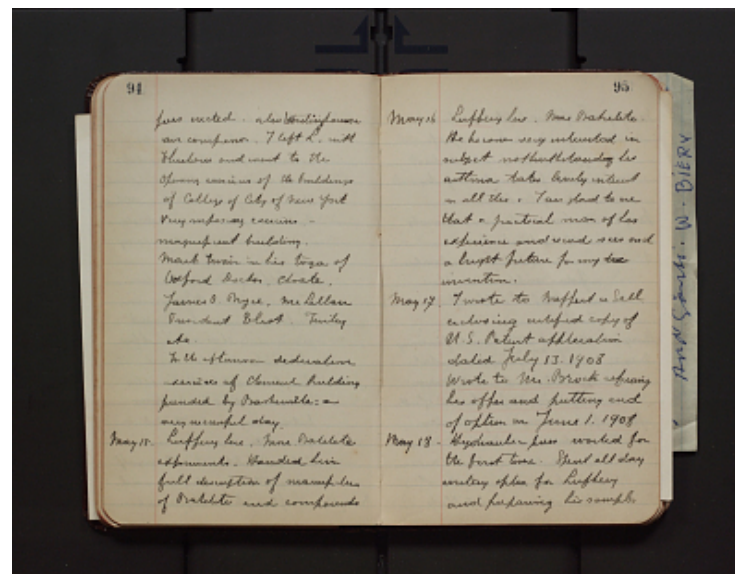 94
press erected. also Westinghouse
air compressor. I left L. with
Thurlow and went to the
opening exercises of the buildings
of College of City of New York
Very imposing exercise -
magnificent building.
Mark Twain in his toga of
Oxford Doctor. Choate.
James B. Bryce. McLellan
President Eliot. Finley
etc.
In the afternoon dedication
exercises of Chemical Building
presided by Baskerville: a
very successful day.
May 15. Luffery here. More Bakelite
experiments. Handed him
full description of manipulation
of Bakelite and compounds
95
May 16 Luffery here. More Bakelite.
He became very interested in
subject notwithstanding his
asthma takes lively interest
in all this. I am glad to see
that a practical man of his
experience and sees and
a bright future for my
invention.
May 17. I wrote to
enclosing certified copy of
U.S. Patent application
dated July 13. 1908
Wrote to Mr. Brock refusing
his offer and putting end
of option on June 1. 1908
May 18 - Hydraulic press worked for
the first time. Spent all day
for Luffery
and preparing his samples
W. BIERY